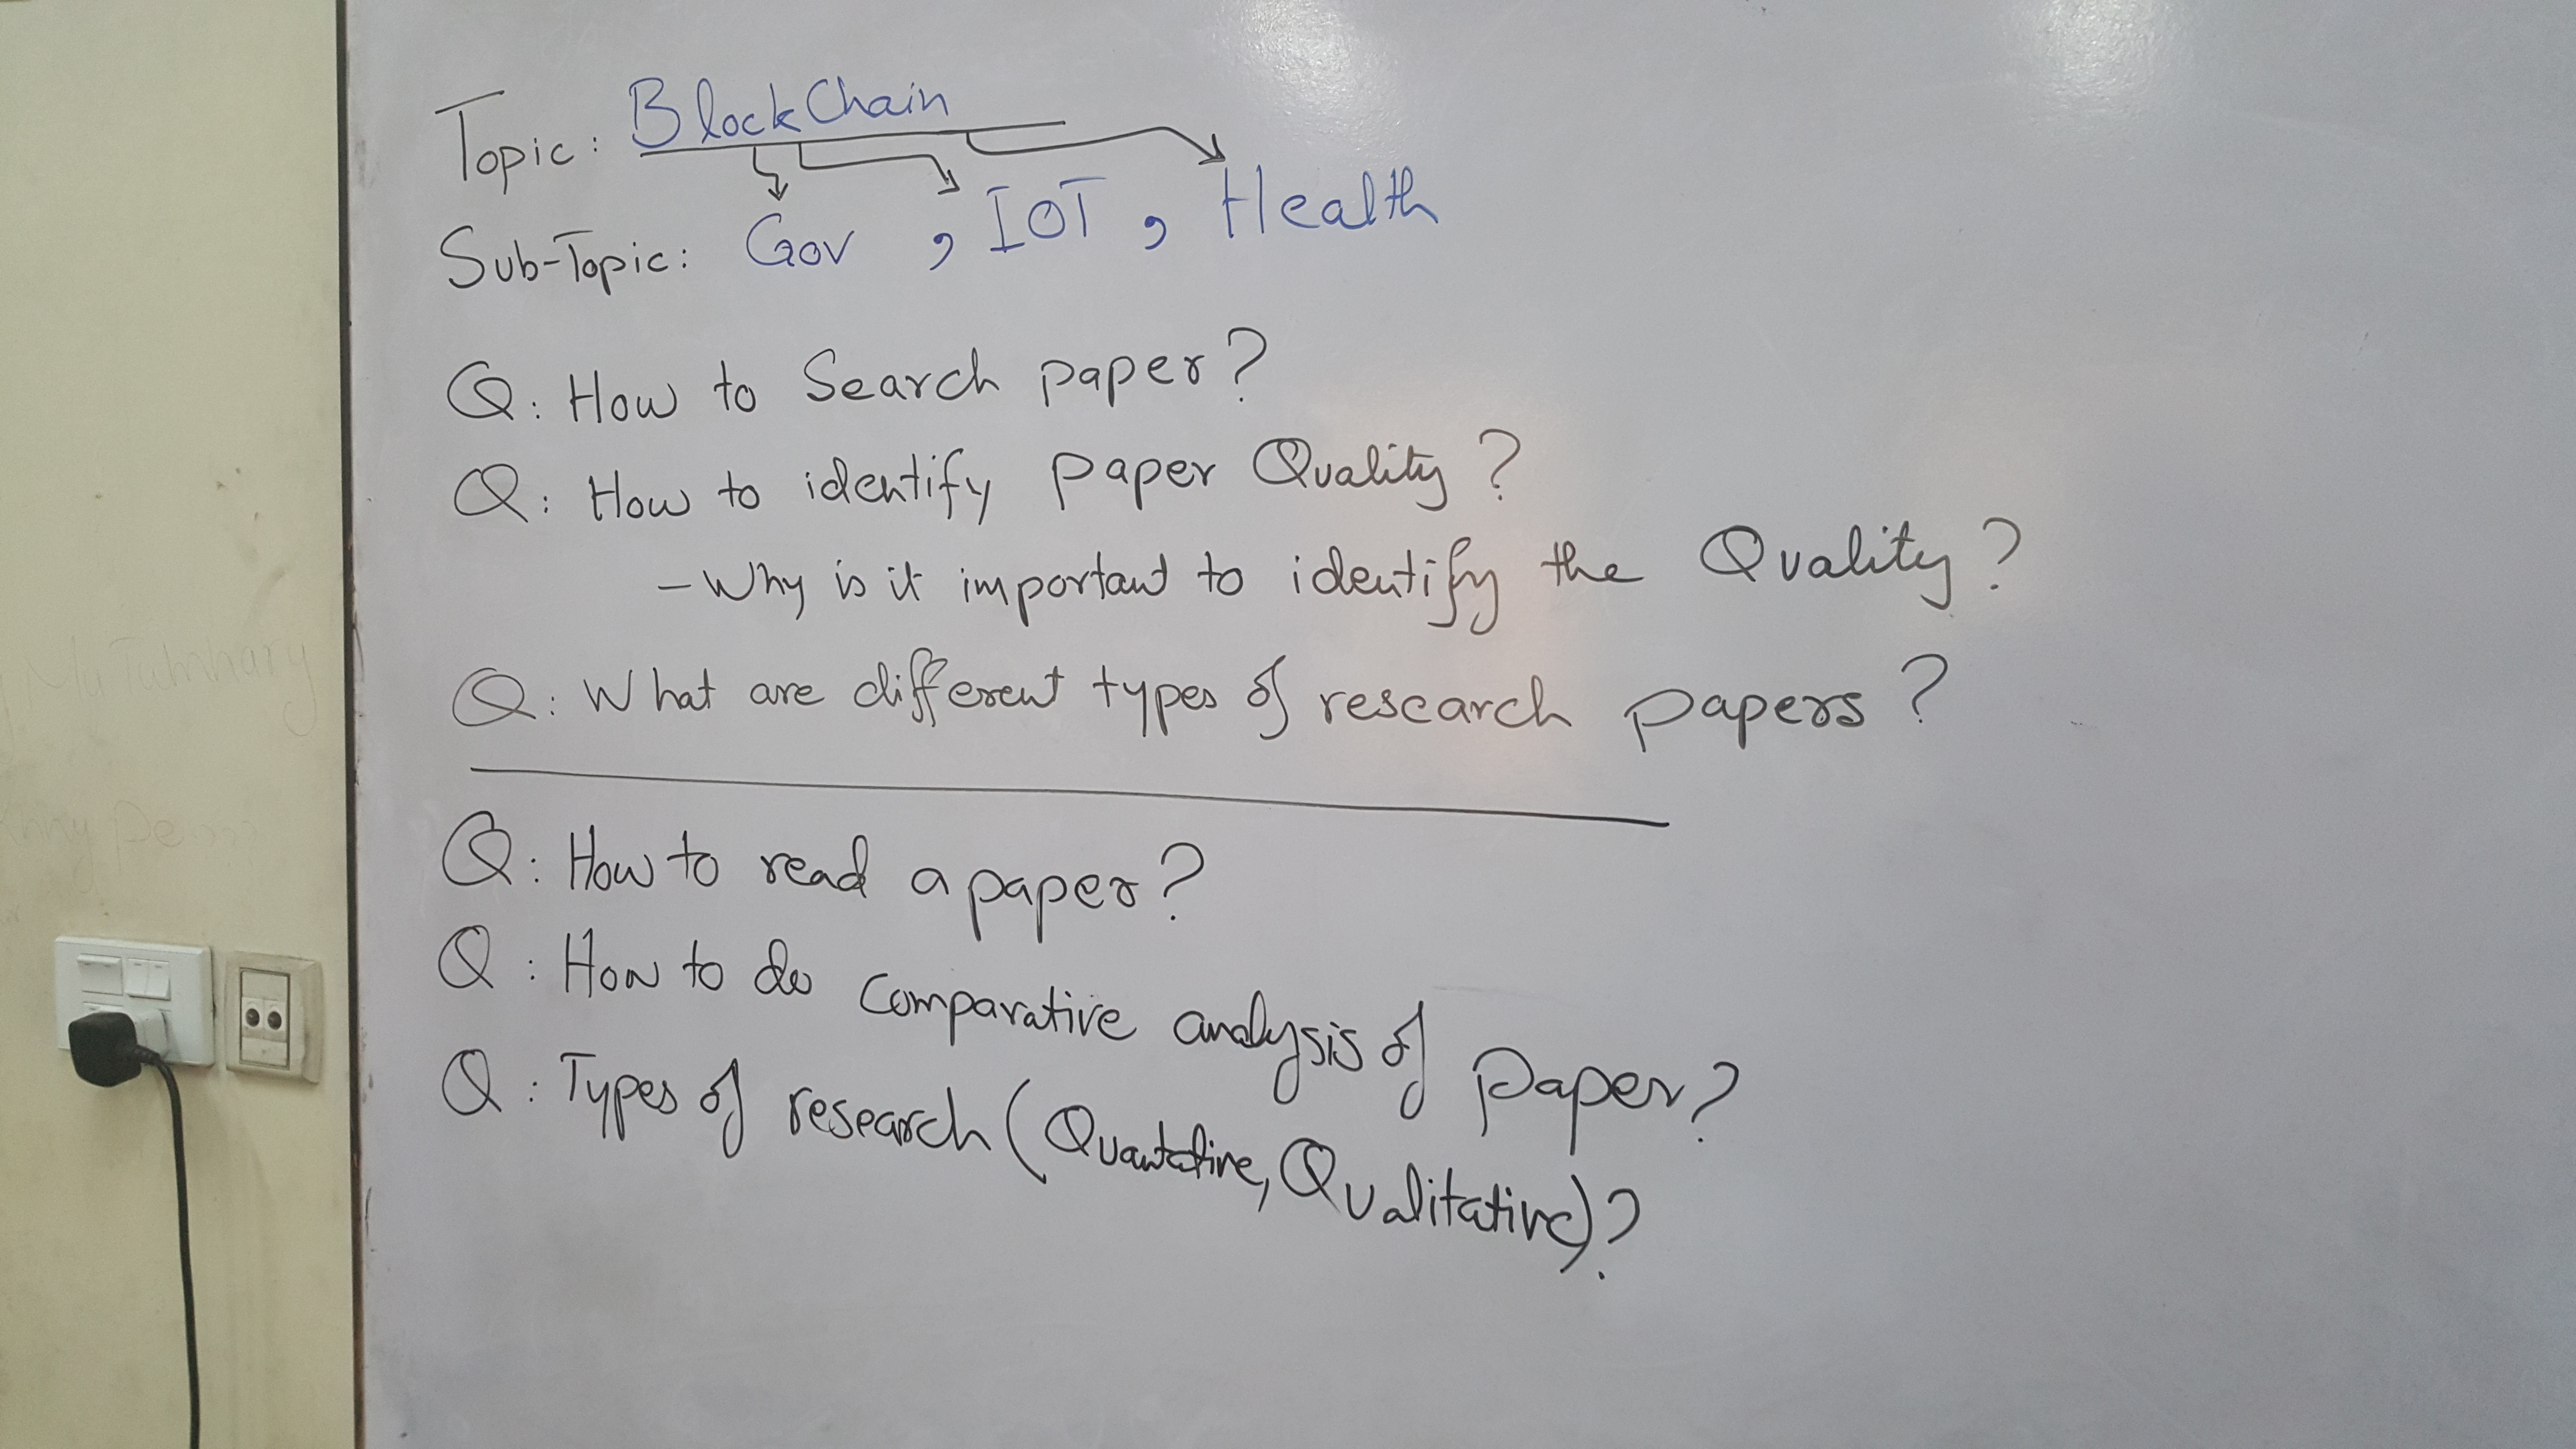 Topic: BlockChain
Sub-Topic: Gov , IOT , Health
Q: How to Search paper?
Q: How to identify paper Quality?
- Why is it important to identify the Quality?
Q: What are different types of research papers?
Q: How to read a paper?
Q: How to do comparative analysis of paper?
Q: Types of research (Quantative, Qualitative)?
Ma Tumhary